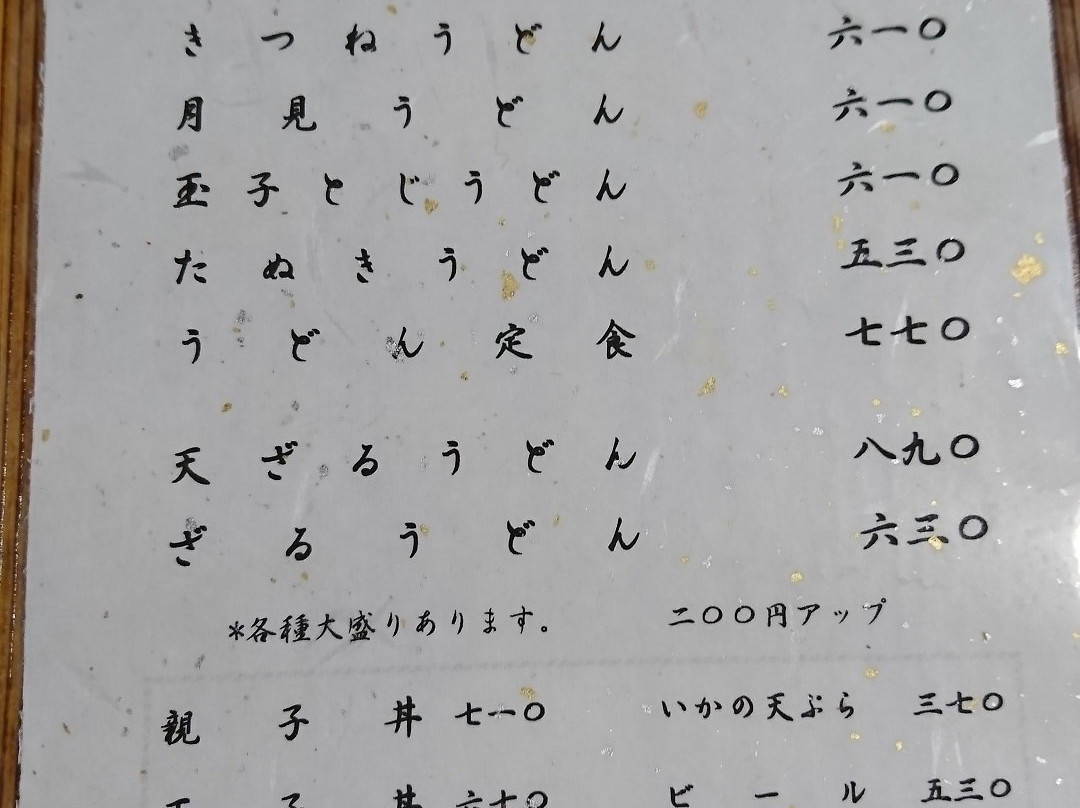 きつねうどん 六一〇
月見うどん 六一〇
玉子とじうどん 六一〇
たぬきうどん 五三〇
うどん定食 七七〇
天ざるうどん 八九〇
ざるうどん 六三〇
*各種大盛りあります。 二〇〇円アップ
親子丼 七一〇 いかの天ぷら 三七〇
玉子丼 六七〇 ビール 五三〇